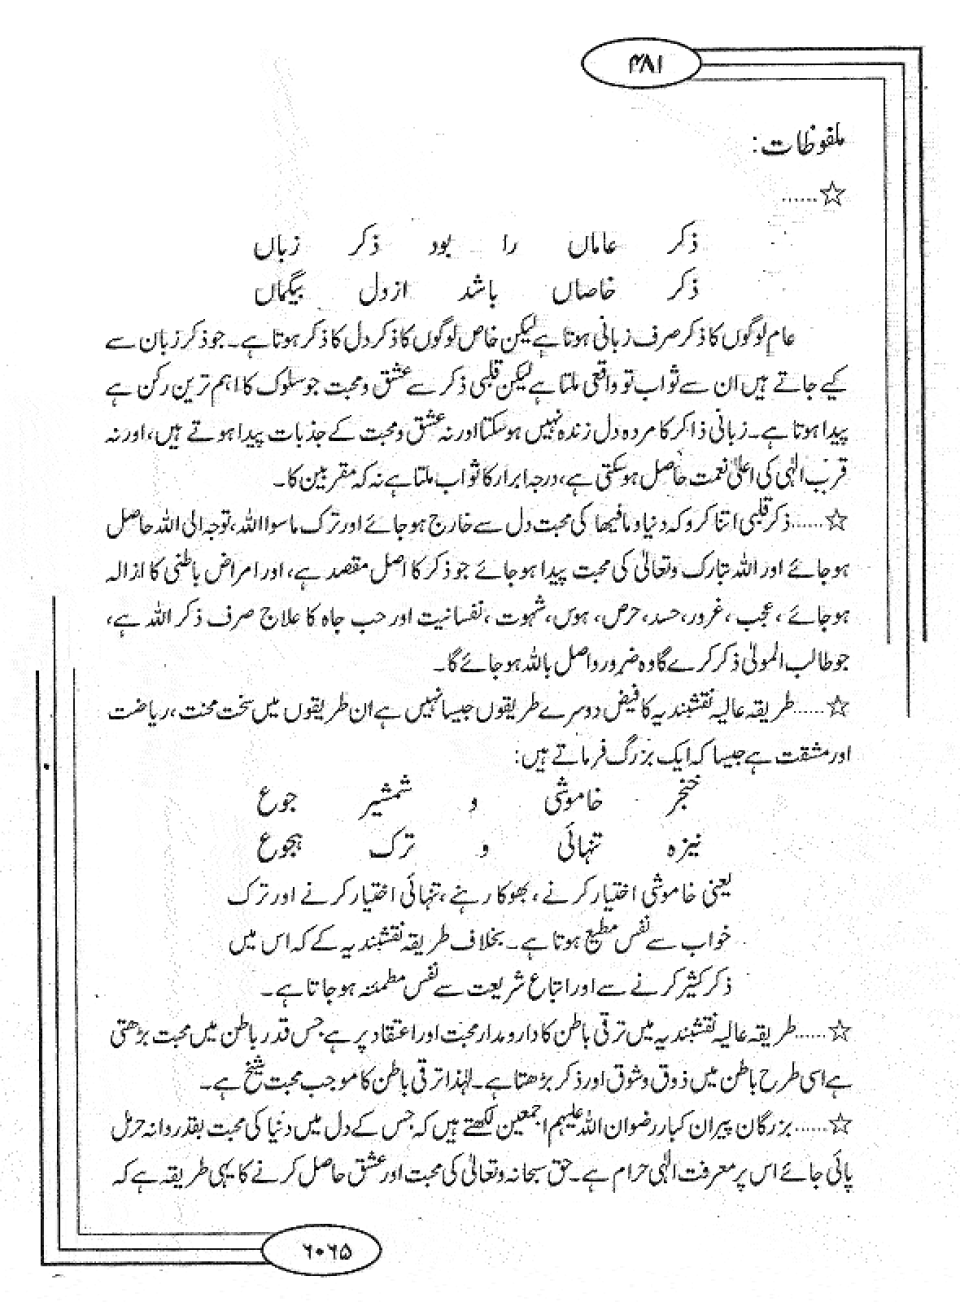 ۳۸۱
ملفوظات:
☆......
ذکر عاماں را بود ذکر زباں
ذکر خاصاں باشد ازدل بیگماں
عام لوگوں کا ذکر صرف زبانی ہوتا ہے لیکن خاص لوگوں کا ذکر دل کا ذکر ہوتا ہے۔ جو ذکر زبان سے
کیے جاتے ہیں ان سے ثواب تو واقعی ملتا ہے لیکن قلبی ذکر سے عشق و محبت جو سلوک کا اہم ترین رکن ہے
پیدا ہوتا ہے۔ زبانی ذاکر کا مردہ دل زندہ نہیں ہو سکتا اور نہ عشق و محبت کے جذبات پیدا ہوتے ہیں، اور نہ
قرب الٰہی کی اعلیٰ نعمت حاصل ہو سکتی ہے، درجہ ابرار کا ثواب ملتا ہے نہ کہ مقربین کا۔
☆......ذکر قلبی اتنا کرو کہ دنیا و مافیھا کی محبت دل سے خارج ہو جائے اور ترک ماسوا اللہ، توجہ الی اللہ حاصل
ہو جائے اور اللہ تبارک و تعالیٰ کی محبت پیدا ہو جائے جو ذکر کا اصل مقصد ہے، اور امراض باطنی کا ازالہ
ہو جائے، عجب، غرور، حسد، حرص، ہوس، شہوت، نفسانیت اور حب جاہ کا علاج صرف ذکر اللہ ہے،
جو طالب المولیٰ ذکر کرے گا وہ ضرور واصل باللہ ہو جائے گا۔
☆......طریقہ عالیہ نقشبندیہ کا فیض دوسرے طریقوں جیسا نہیں ہے ان طریقوں میں سخت محنت، ریاضت
اور مشقت ہے جیسا کہ ایک بزرگ فرماتے ہیں:
خنجر خاموشی و شمشیر جوع
نیزہ تنہائی و ترک ہجوع
یعنی خاموشی اختیار کرنے، بھوکا رہنے، تنہائی اختیار کرنے اور ترک
خواب سے نفس مطیع ہوتا ہے۔ بخلاف طریقہ نقشبندیہ کے کہ اس میں
ذکر کثیر کرنے سے اور اتباع شریعت سے نفس مطمئنہ ہو جاتا ہے۔
☆......طریقہ عالیہ نقشبندیہ میں ترقی باطن کا دارومدار محبت اور اعتقاد پر ہے جس قدر باطن میں محبت بڑھتی
ہے اسی طرح باطن میں ذوق و شوق اور ذکر بڑھتا ہے۔ لہٰذا ترقی باطن کا موجب محبت شیخ ہے۔
☆......بزرگان پیران کبار رضوان اللہ علیہم اجمعین لکھتے ہیں کہ جس کے دل میں دنیا کی محبت بقدر دانہ خرمل
پائی جائے اس پر معرفت الٰہی حرام ہے۔ حق سبحانہ و تعالیٰ کی محبت اور عشق حاصل کرنے کا یہی طریقہ ہے کہ
۶۰۶۵